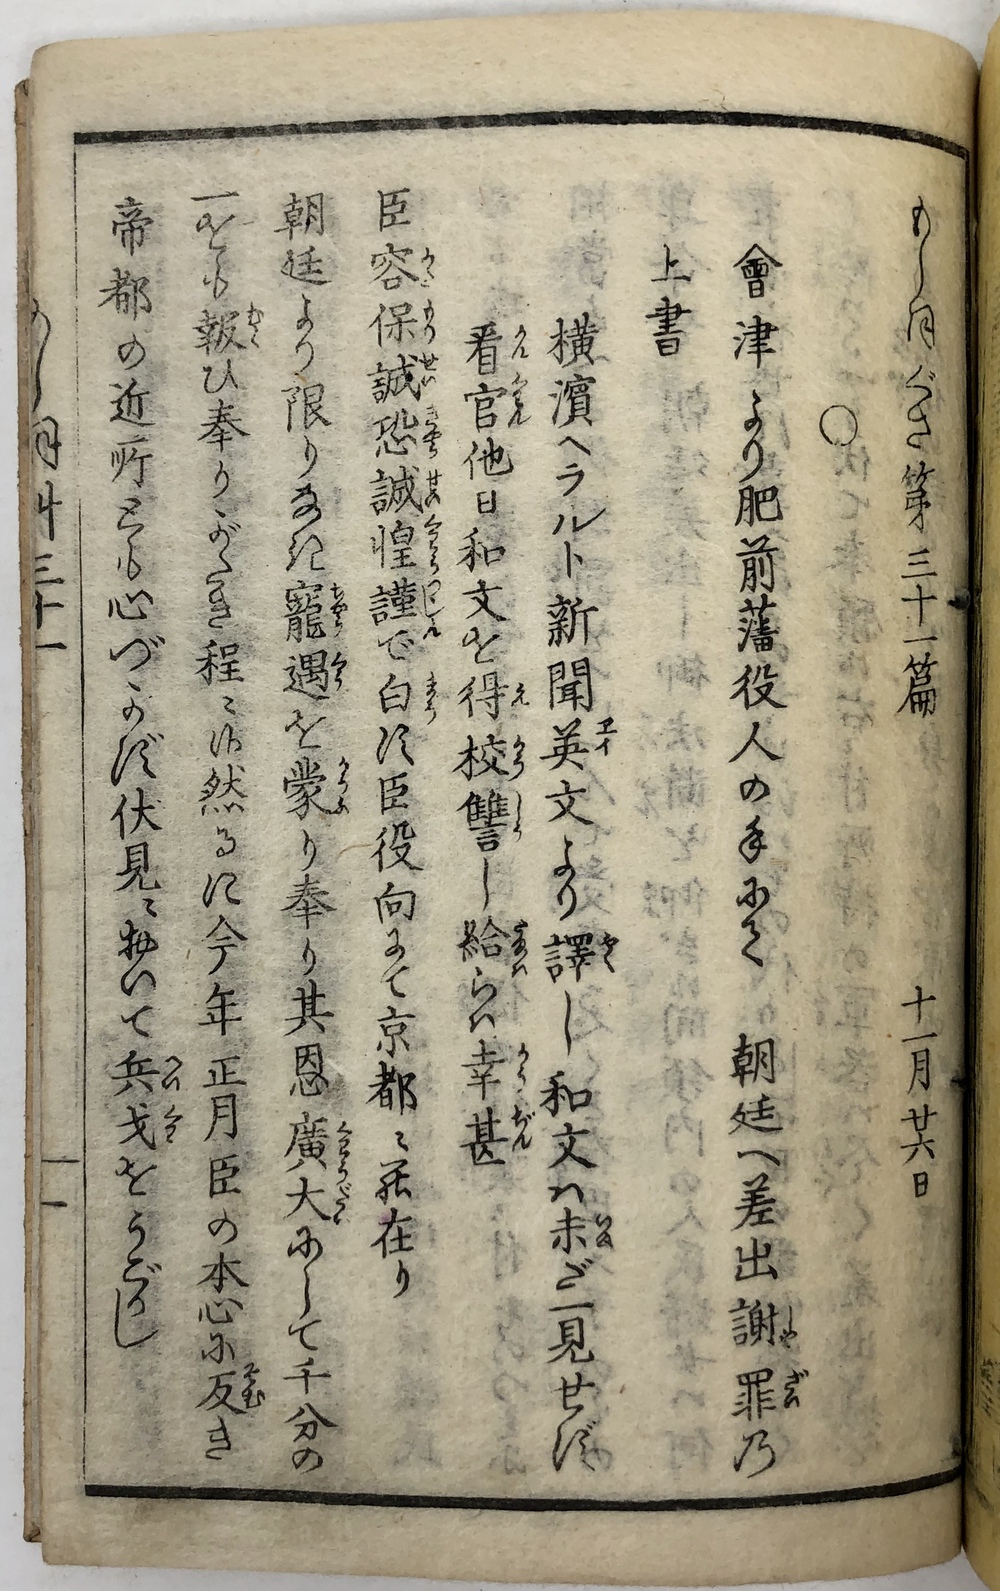 もしほぐさ第三十一篇　十一月廿六日
○
會津より肥前藩役人の手にて　朝廷へ差出謝罪乃
上書
横濱ヘラルト新聞英文より譯し和文ハ未ざ一見せず
看官他日和文を得校讐し給らハ幸甚
臣容保誠恐誠惶謹で白す臣役向にて京都ニ罷在り
朝廷より限りなき寵遇を蒙り奉り其恩廣大にして千分の
一をも報ひ奉りがたき程ニ候然るに今年正月臣の本心に反き
帝都の近所とも心づかず伏見ニ於いて兵戈をうごかし
もしほ草三十一　一